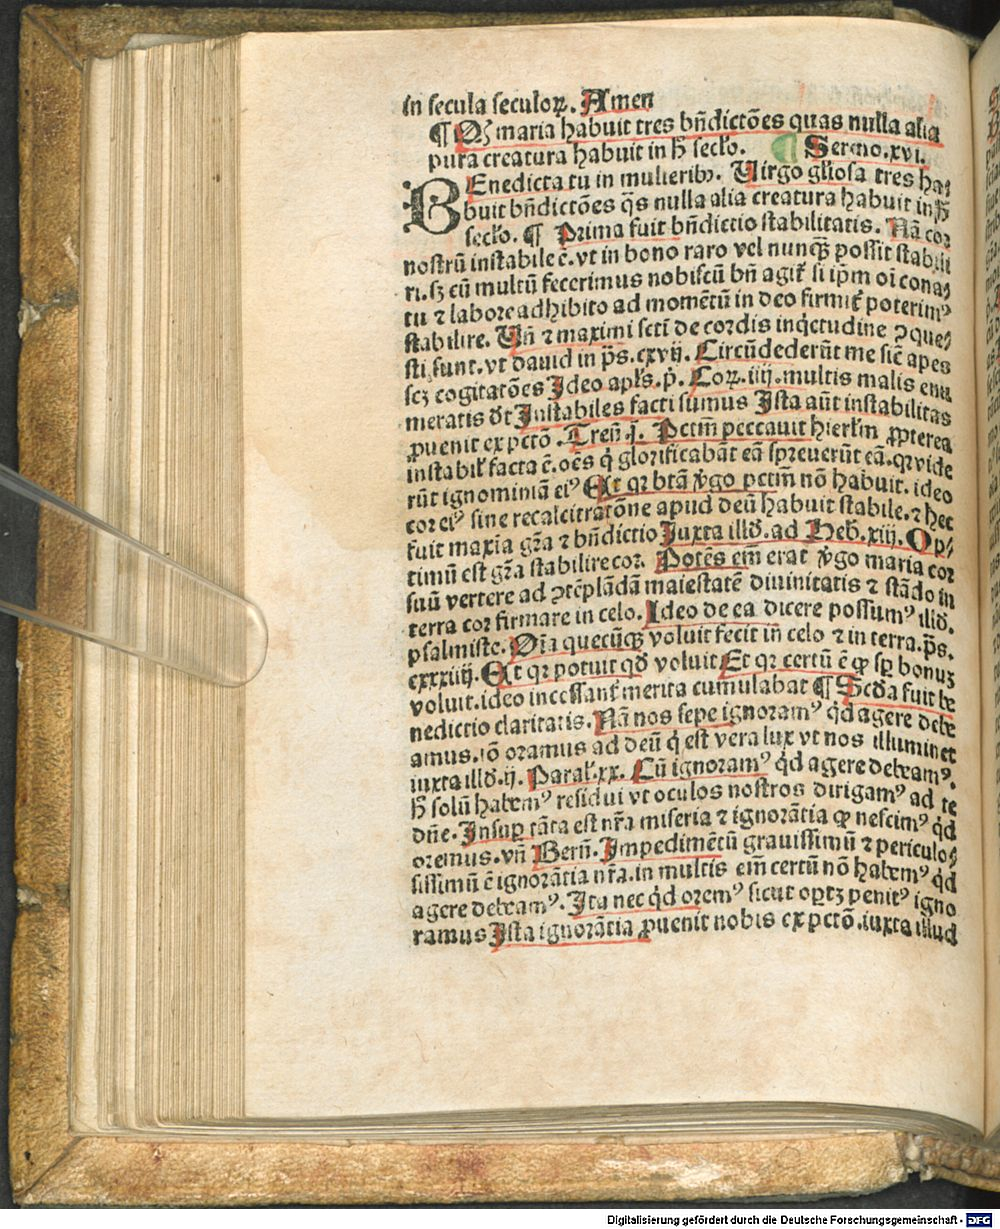 in secula seculoꝝ. Amen
¶ Qꝫ maria habuit tres bn̄dictōes quas nulla alia
pura creatura habuit in h̄ secl̓o. Sermo.xvi.
BEnedicta tu in mulieribꝰ. Uirgo gl̓iosa tres ha⸗
buit bn̄dictōes q̄s nulla alia creatura habuit in h̄
secl̓o. ¶ Prima fuit bn̄dictio stabilitatis. Nā cor
nostrū instabile ē. vt in bono raro vel nunqꝫ possit stabili
ri. sꝫ cū multū fecerimus nobiscū bn̄ agit̓ si ip̄m oī cona⸗
tu ⁊ labore adhibito ad momētū in deo firmit̓ poterimꝰ
stabilire. Un̄ ⁊ maximi scti de cordis inq̇etudine ꝯque⸗
sti sunt. vt dauid in ps̄. cxvij. Circūdederūt me sic̄ apes
scꝫ cogitatōes Ideo apl̓s. p̄. Coꝝ. iiij. multis malis enu
meratis dt̄ Instabiles facti sumus Ista aūt instabilitas
ꝓuenit ex pctō. Tren̄. j. Pctm̄ peccauit hierl̓m ꝓpterea
instabil̓ facta ē. oēs q̇ glorificabāt eā spreuerūt eā. qꝛ vide
rūt ignominiā eiꝰ Et qꝛ btā v̓go pctm̄ nō habuit. ideo
cor eiꝰ sine recalcitratōne apud deū habuit stabile. ⁊ hec
fuit maxīa grā ⁊ bn̄dictio Juxta illd̓. ad Heb̓. xiij. Op⸗
timū est grā stabilire cor. Potēs em̄ erat v̓go maria cor
suū vertere ad ꝯtēplādā maiestatē diuinitatis ⁊ stādo in
terra cor firmare in celo. Ideo de ea dicere possumꝰ illd̓.
psalmiste. Oīa quecūqꝫ voluit fecit in celo ⁊ in terra. ps̄.
cxxxiiij. Et qꝛ potuit qd̓ voluit Et qꝛ certū ē ꝙ sp̄ bonuꝫ
voluit. ideo incessant̓ merita cumulabat ¶ Scd̓a fuit be
nedictio claritatis. Nā nos sepe ignoramꝰ qd̓ agere debe
amus. iō oramus ad deū q̇ est vera lux vt nos illuminet
iuxta illd̓. ij. Paral̓. xx. Cū ignoramꝰ qd̓ agere debeamꝰ.
h̄ solū habemꝰ residui vt oculos nostros dirigamꝰ ad te
dn̄e. Insuꝑ tāta est nr̄a miseria ⁊ ignorātia ꝙ nescimꝰ qd̓
oremus. vn̄ Bern̄. Impedimētū grauissimū ⁊ periculo⸗
sissimū ē ignorātia nr̄a. in multis em̄ certū nō habemꝰ qd̓
agere debeamꝰ. Ita nec qd̓ oremꝰ sicut oꝑtꝫ penitꝰ igno
ramus Ista ignorātia ꝓuenit nobis ex pctō. iuxta illud
Digitalisierung gefördert durch die Deutsche Forschungsgemeinschaft - DFG